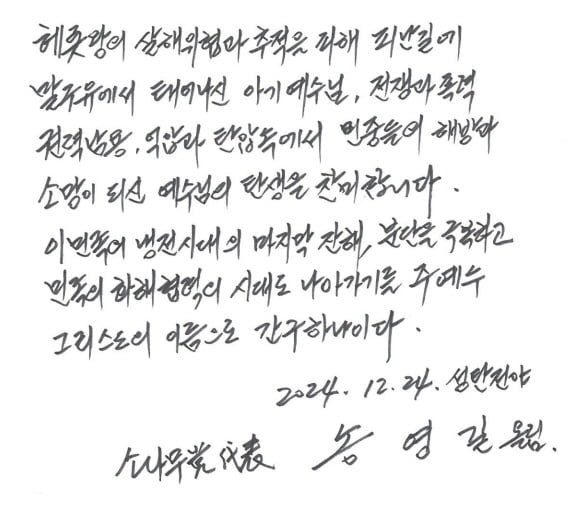 헤롯왕의 살해위협과 추적을 피해 피난길에
말구유에서 태어나신 아기 예수님, 전쟁과 폭력
권력남용, 억압과 탄압속에서 민중들의 해방과
소망이 되신 예수님의 탄생을 찬미합니다.
이 민족이 냉전시대의 마지막 잔해, 분단을 극복하고
민족의 화해협력의 시대로 나아가기를 주 예수
그리스도의 이름으로 간구하나이다.
2024. 12. 24. 성탄전야
소나무党 代表 송 영 길 올림.